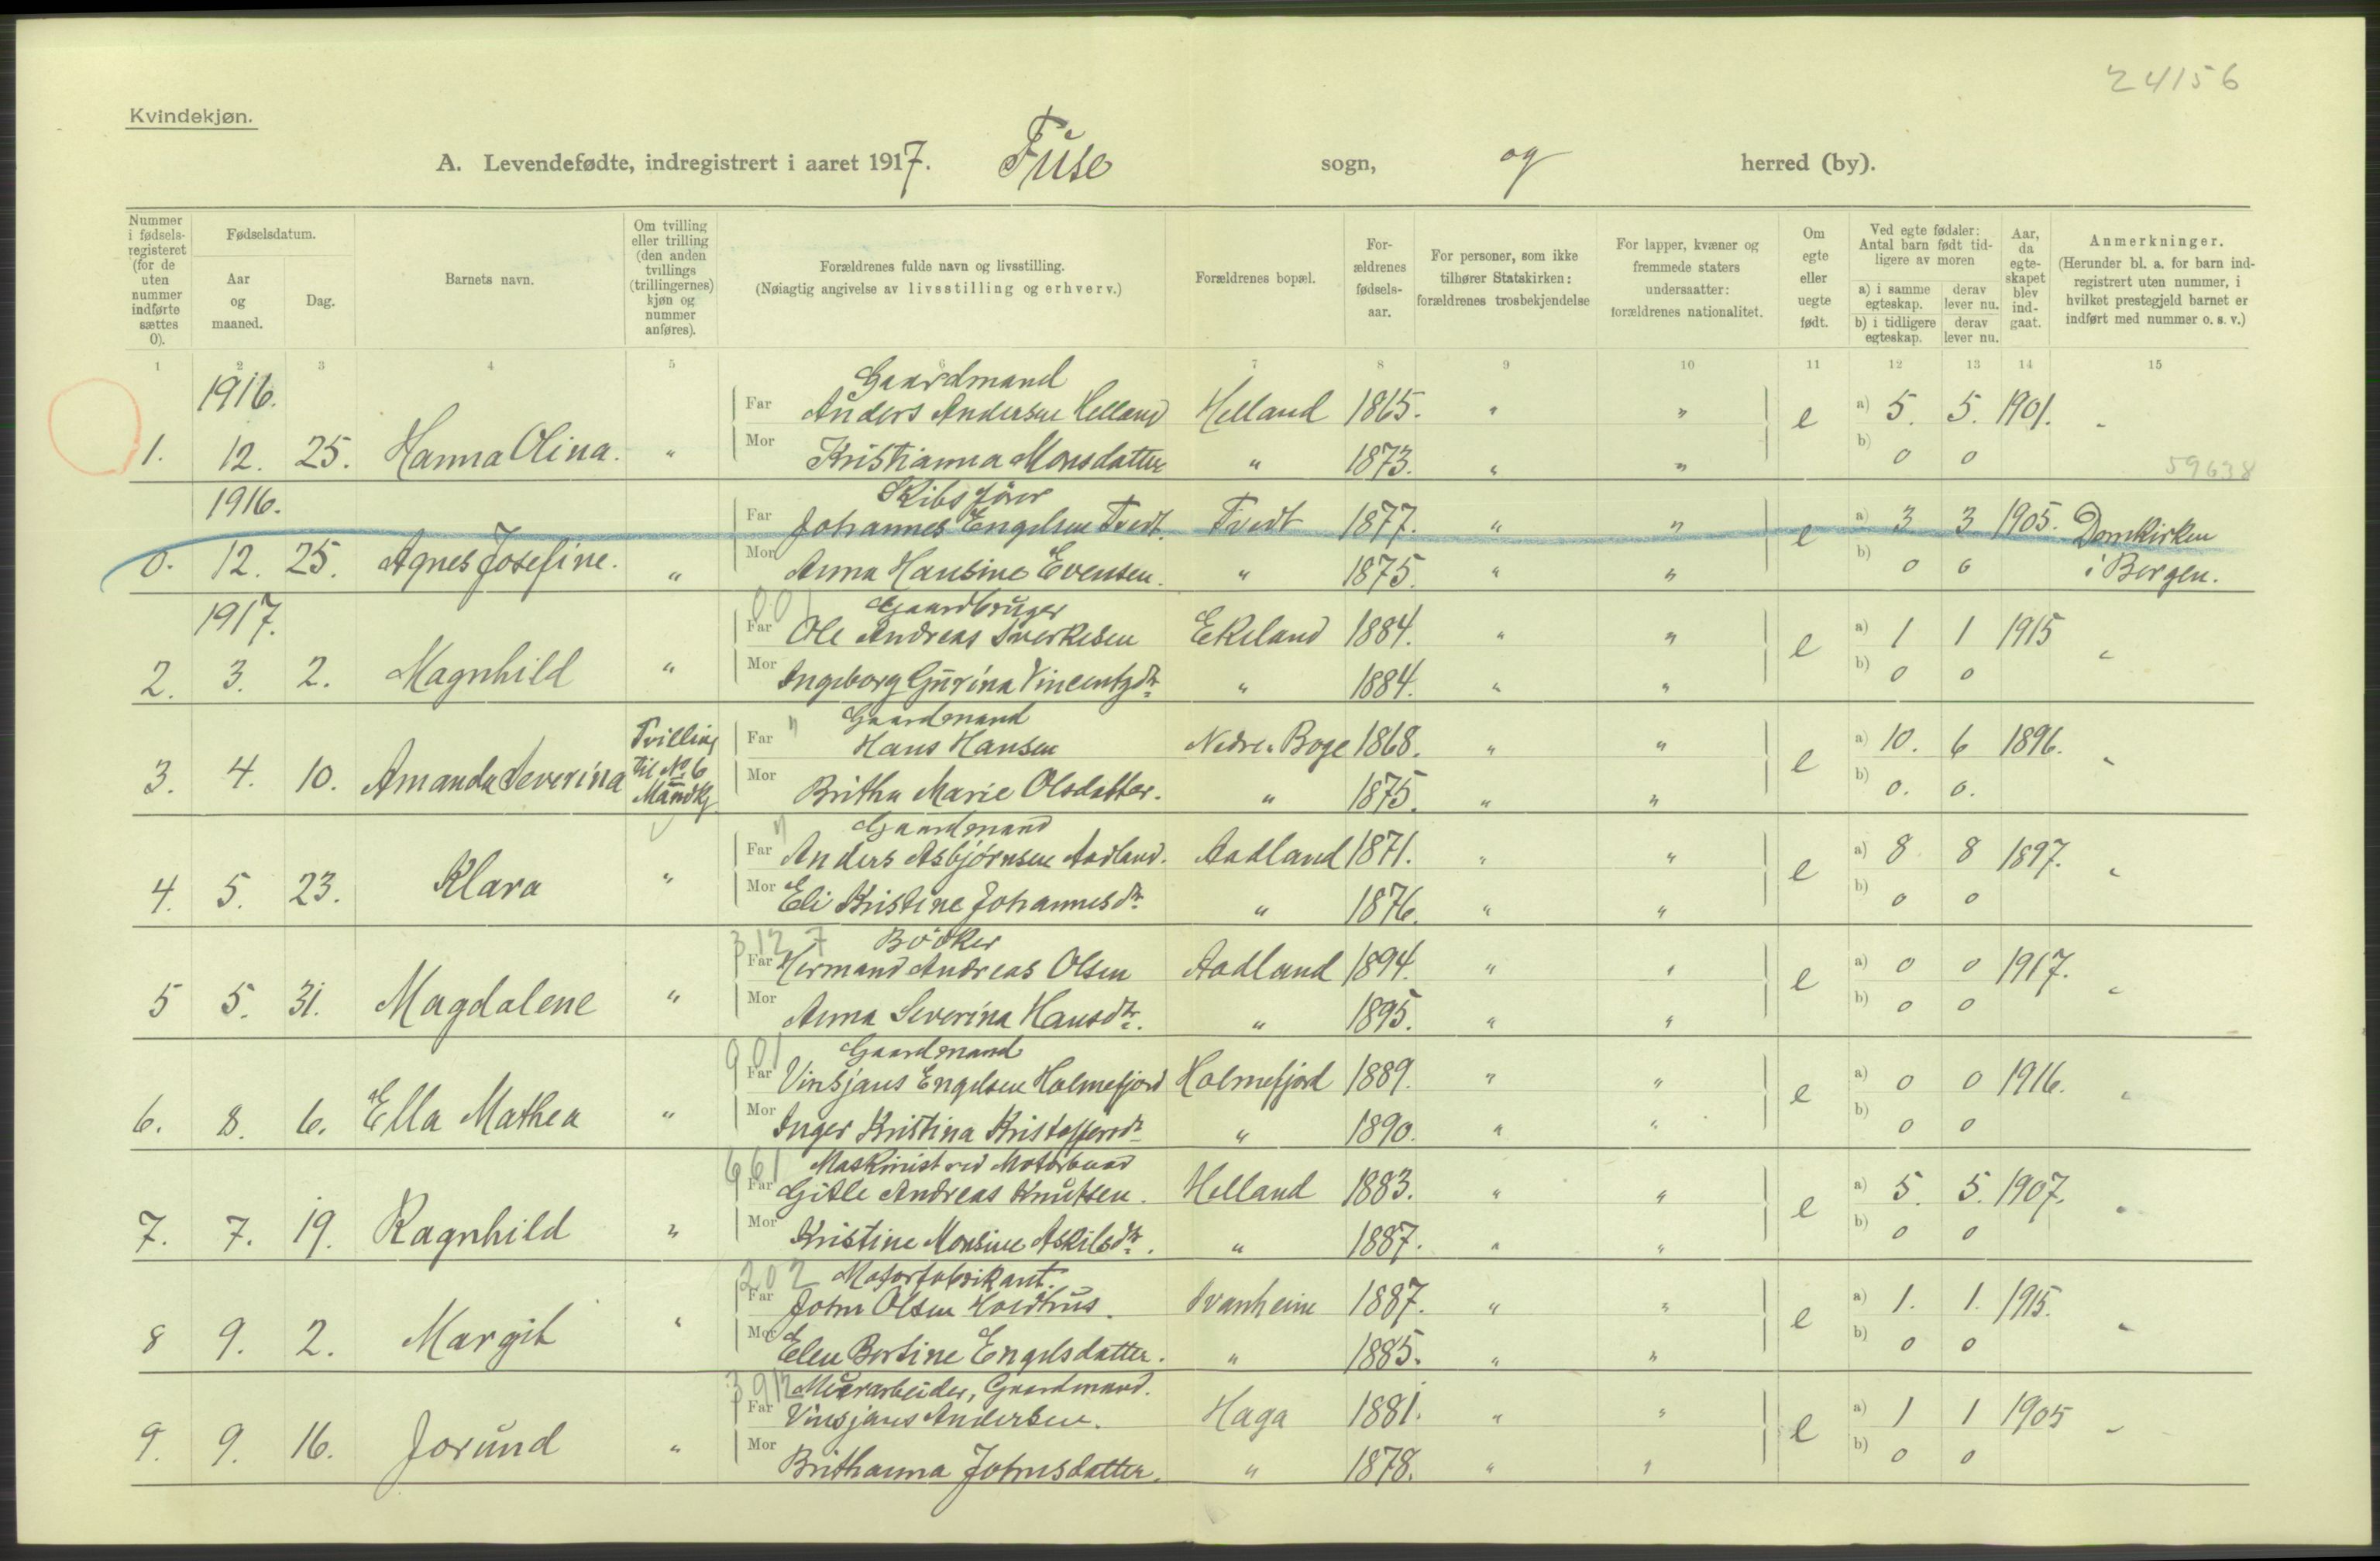 24156
Kvindekjøn.
A. Levendefødte, indregistrert i aaret 1917. Fuse sogn, og herred (by).
Nummer i fødselsregisteret (for de uten nummer indførte sættes 0).
Fødselsdatum.
Aar og maaned.
Dag.
Barnets navn.
Om tvilling eller trilling (den anden tvillings (trillingernes) kjøn og nummer anføres).
Forældrenes fulde navn og livsstilling.
(Nøiagtig angivelse av livsstilling og erhverv.)
Forældrenes bopæl.
Forældrenes fødselsaar.
For personer, som ikke tilhører Statskirken: forældrenes trosbekjendelse
For lapper, kvæner og fremmede staters undersaatter: forældrenes nationalitet.
Om egte eller uegte født.
Ved egte fødsler: Antal barn født tidligere av moren
a) i samme egteskap. derav lever nu.
b) i tidligere egteskap. derav lever nu.
Aar, da egteskapet blev indgaat.
Anmerkninger.
(Herunder bl. a. for barn indregistrert uten nummer, i hvilket prestegjeld barnet er indført med nummer o. s. v.)
1 2 3 4 5 6 7 8 9 10 11 12 13 14 15
1916. Gaardmand
Far Anders Andersen Helland Helland 1865. " " e a) 5. 5. 1901. "
1. 12. 25. Hanna Olina. " Mor Kristianna Monsdatter " 1873. " " b) 0 0
59638
1916. Skibsfører
Far Johannes Engelsen Tvedt. Tvedt 1877. " " e a) 3 3 1905. Domkirken
0. 12. 25. Agnes Josefine. " Mor Anna Hansine Evensen. " 1875. " " b) 0 0 i Bergen.
1917. Gaardbruger
Far Ole Andreas Sverkesen Ekeland 1884. " " e a) 1 1 1915 "
2. 3. 2. Magnhild " Mor Ingeborg Gurina Vincentzdtr " 1884. " " b) 0 0
Tvilling til No 6 Mandkj.
Gaardmand
Far Hans Hansen Nedre Boge 1868. " " e a) 10. 6 1896. "
3. 4. 10. Amanda Severina Mor Britha Marie Olsdatter. " 1875. " " b) 0. 0.
Gaardmand
Far Anders Asbjørnsen Aadland. Aadland 1871. " " e a) 8 8 1897. "
4. 5. 23. Klara " Mor Eli Kristine Johannesdtr " 1876. " " b) 0 0
312 7 Bødker
Far Hermand Andreas Olsen Aadland 1894. " " e a) 0 0 1917. "
5 5. 31. Magdalene " Mor Anna Severina Hansdtr. " 1895. " " b) 0 0
901 Gaardmand
Far Vinsjans Engelsen Holmefjord Holmefjord 1889. " " e a) 0 0 1916. "
6. 8. 6. Ella Mathea " Mor Inger Kristina Kristoffersdtr " 1890. " " b) 0 0
661 Maskinist ved Motorbaad
Far Gitle Andreas Knutsen. Helland 1883. " " e a) 5. 5. 1907. "
7. 7. 19. Ragnhild " Mor Kristine Monsine Askilsdtr. " 1887. " " b) 0 0
202 Motorfabrikant.
Far John Olsen Hovdhus. Svanheim 1887. " " e a) 1. 1. 1915. "
8 9. 2. Margit " Mor Elen Bertine Engelsdatter. " 1885. " " b) 0 0
3912 Murarbeider, Gaardmand.
Far Vinsjans Andersen. Haga 1881. " " e a) 1 1 1905 "
9. 9. 16. Jorund " Mor Brithanna Johnsdatter. " 1878. " " b) 0 0